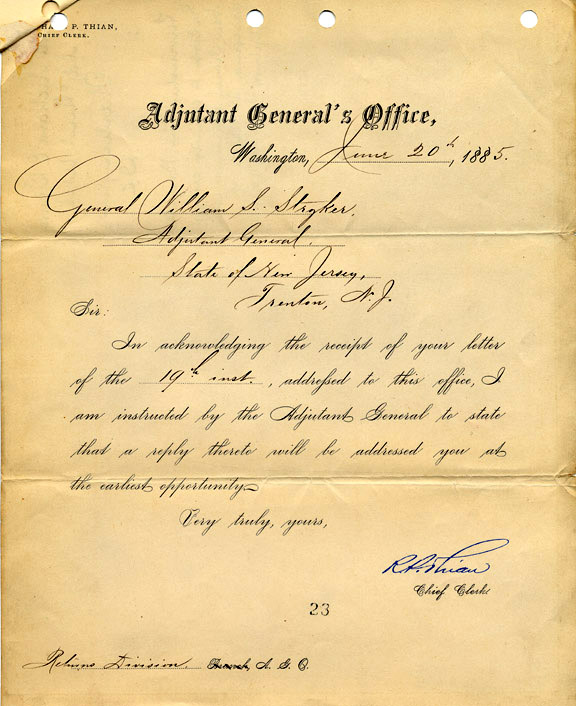 P. THIAN,
CHIEF CLERK.
Adjutant General's Office,
Washington, June 20th, 1885.
General William S. Stryker,
Adjutant General,
State of New Jersey,
Trenton, N. J.
Sir:
In acknowledging the receipt of your letter
of the 19th inst., addressed to this office, I
am instructed by the Adjutant General to state
that a reply thereto will be addressed you at
the earliest opportunity.
Very truly, yours,
R. P. Thian
Chief Clerk.
23
Returns Division. Branch, A. G. O.